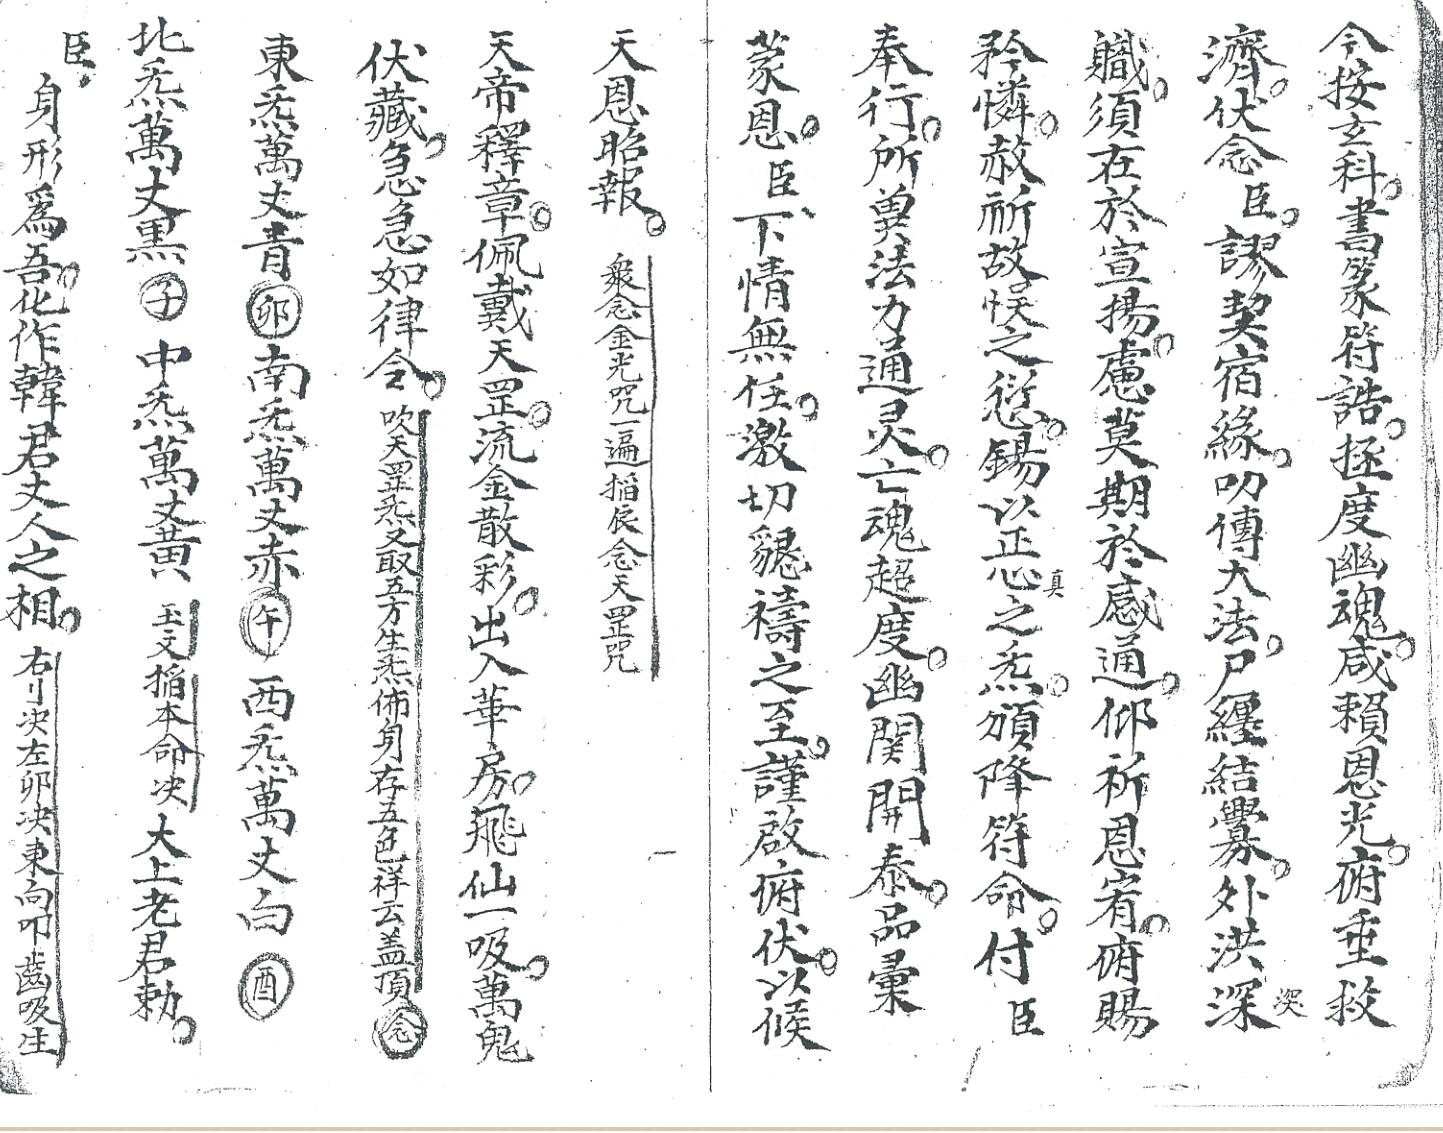 令按玄科。書篆符誥。拯度幽魂。咸賴恩光。俯垂救
濟。伏念臣。謬契宿緣。叨傳大法。尸纏結釁。外洪深
渕
職。須在於宣揚。慮莫期於感通。仰祈恩宥。俯賜
矜憐。赦祈故悞之愆。錫以正之炁。頒降符命。付臣
真
奉行。所兾法力通灵。亡魂超度。幽関開泰。品彙
蒙恩。臣下情無任。激切懇禱之至。謹啟俯伏。以候
天恩昭報。 衆念金光咒一遍搯辰念天罡咒
天帝釋章。佩戴天罡。流金散彩。出入華房。飛仙一吸。萬鬼
伏藏。急急如律令。 吹天罡炁又取五方生炁佈身存五色祥云盖頂 念
東炁萬丈青 卯 南炁萬丈赤 午 西炁萬丈白 酉
北炁萬丈黒 子 中炁萬丈黄 玉文搯本命决 太上老君勅。
臣
身形爲吾。化作韓君丈人之相。 右刂决左卯决東向叩齒吸生